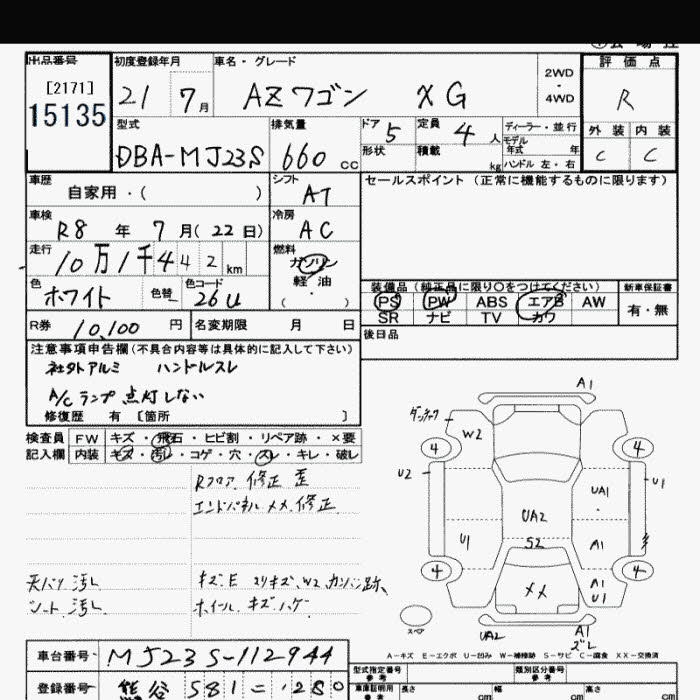 出品番号
[2171]
15135
初度登録年月
21 7月
車名・グレード
AZワゴン XG
2WD
・
4WD
評価点
R
外装 内装
C C
型式
DBA-MJ23S
排気量
660 cc
ドア 5
定員 4 人
形状
積載 kg
ディーラー・並行
モデル
年式 年
ハンドル 左・右
車歴
自家用・( )
シフト
AT
セールスポイント(正常に機能するものに限ります)
車検
R8 年 7 月(22日)
冷房
AC
走行
10万1千442 km
燃料
ガソリン
軽油
・
( )
色
ホワイト
色替
色コード
26U
装備品(純正品に限り○をつけてください)
新車保証書
PS PW ABS エアB AW
SR ナビ TV カワ
有・無
R券 10,100 円
名変期限 月 日
後日品
注意事項申告欄(不具合内容等は具体的に記入して下さい)
社外アルミ ハンドルスレ
A/Cランプ点灯しない
修復歴 有 〔箇所 〕
検査員 FW キズ・飛石・ヒビ割・リペア跡・×要
記入欄 内装 キズ・汚レ・コゲ・穴・スレ・キレ・破レ
Rフロア 修正 歪
エンドパネル メメ 修正
天バリ 汚レ
シート 汚レ
キズE スリキズ、W2、カンバン跡、
ホイール キズ ハゲ
A1
W2
4 4
U2
U1
UA1
UA2
U1
S2
A1
4 4
メメ
A1
U1
スペア
UA2
A1
ズレ
A-キズ E-エクボ U-凹み W-補修跡 S-サビ C-腐食 XX-交換済
車台番号
MJ23S-112944
登録番号
熊谷 581 ニ ・280
型式指定番号
参考
類別区分番号
参考
車庫証明用
参考
長さ cm
幅 cm
高さ cm